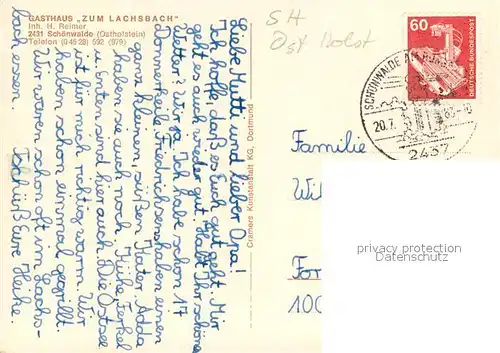 GASTHAUS „ZUM LACHSBACH"
Inh. H. Reimer
2431 Schönwalde (Ostholstein)
Telefon (0 45 28) 592 (979)
Liebe Mutti und lieber Opa!
Ich hoffe daß es Euch gut geht. Mir
geht's auch wieder gut. Habt Ihr schönes
Wetter. Wir ja. Ich habe schon 17
Donnerkeile. Friedrichsens haben einen
ganz kleinen süßen Kater. Adda
sie haben auch noch Kühe, Ferkel
Enten sind hier auch. Die Ostsee
ist für mich richtig warm. Wir
haben schon einmal gegrillt.
Wir waren schon oft im Lachs-
bach essen.
Tschüß Eure Heike.
Cramers Kunstanstalt KG, Dortmund
SH
Ost Holst
60
DEUTSCHE BUNDESPOST
SCHÖNWALDE AM
20.7.
2437
Familie
Wil
For
100
privacy protection
Datenschutz